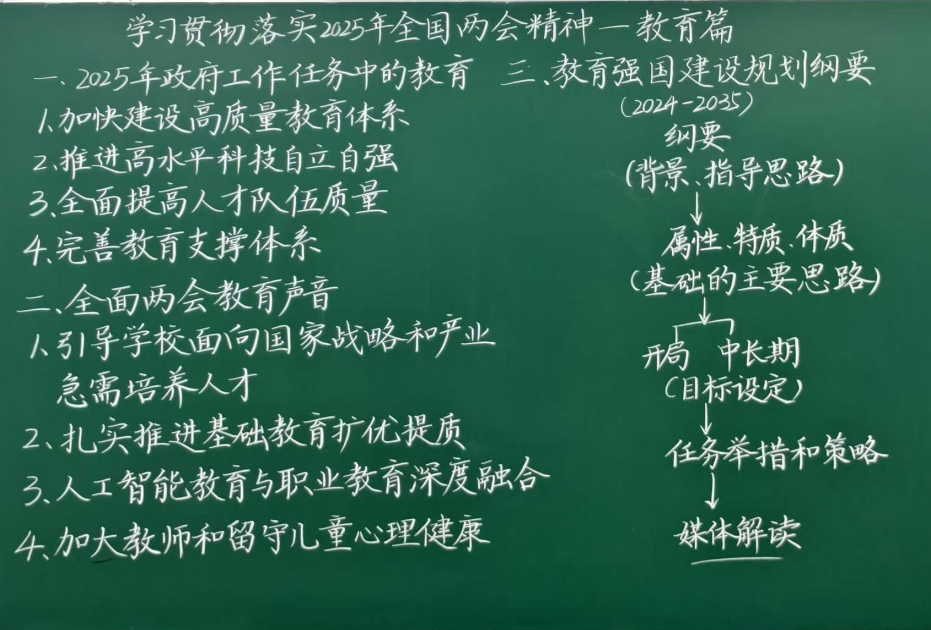 学习贯彻落实2025年全国两会精神—教育篇
一、2025年政府工作任务中的教育
1.加快建设高质量教育体系
2.推进高水平科技自立自强
3.全面提高人才队伍质量
4.完善教育支撑体系
二、全面两会教育声音
1.引导学校面向国家战略和产业
急需培养人才
2、扎实推进基础教育扩优提质
3、人工智能教育与职业教育深度融合
4、加大教师和留守儿童心理健康
三、教育强国建设规划纲要
(2024-2035)
纲要
(背景、指导思路)
属性、特质、体质
(基础的主要思路)
开局 中长期
(目标设定)
任务举措和策略
媒体解读